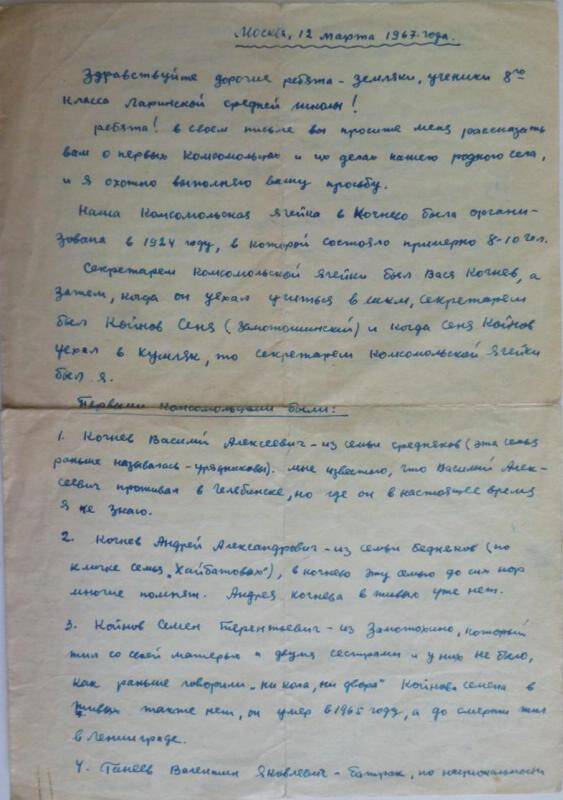 Москва, 12 марта 1967 года.
Здравствуйте дорогие ребята - земляки, ученики 8го
класса Ларинской средней школы!
Ребята! в своем письме вы просите меня рассказать
вам о первых комсомольцах и их делах нашего родного села,
и я охотно выполняю вашу просьбу.
Наша комсомольская ячейка в Кочнево была органи-
зована в 1924 году, в которой состояло примерно 8-10 чел.
Секретарем комсомольской ячейки был Вася Кочнев, а
затем, когда он уехал учиться в шкм, секретарем
был Койнов Сеня (замотохинский) и когда Сеня Койнов
уехал в Кумляк, то секретарем комсомольской ячейки
был я.
Первыми комсомольцами были:
1. Кочнев Василий Алексеевич - из семьи средняков (эта семья
раньше называлась - урядниковы). мне известно, что Василий Алек-
сеевич проживал в Челябинске, но где он в настоящее время
я не знаю.
2. Кочнев Андрей Александрович - из семьи бедняков (по
кличке семья "Хайбатовых"), в Кочнево эту семью до сих пор
многие помнят. Андрея Кочнева в живых уже нет.
3. Койнов Семен Терентьевич - из Замотохино, который
жил со своей матерью и двумя сестрами и у них не было,
как раньше говорили "ни кола, ни двора" Койнова Семена в
живых также нет, он умер в 1965 году, а до смерти жил
в Ленинграде.
4. Ганеев Валентин Яковлевич - батрак, по национальности